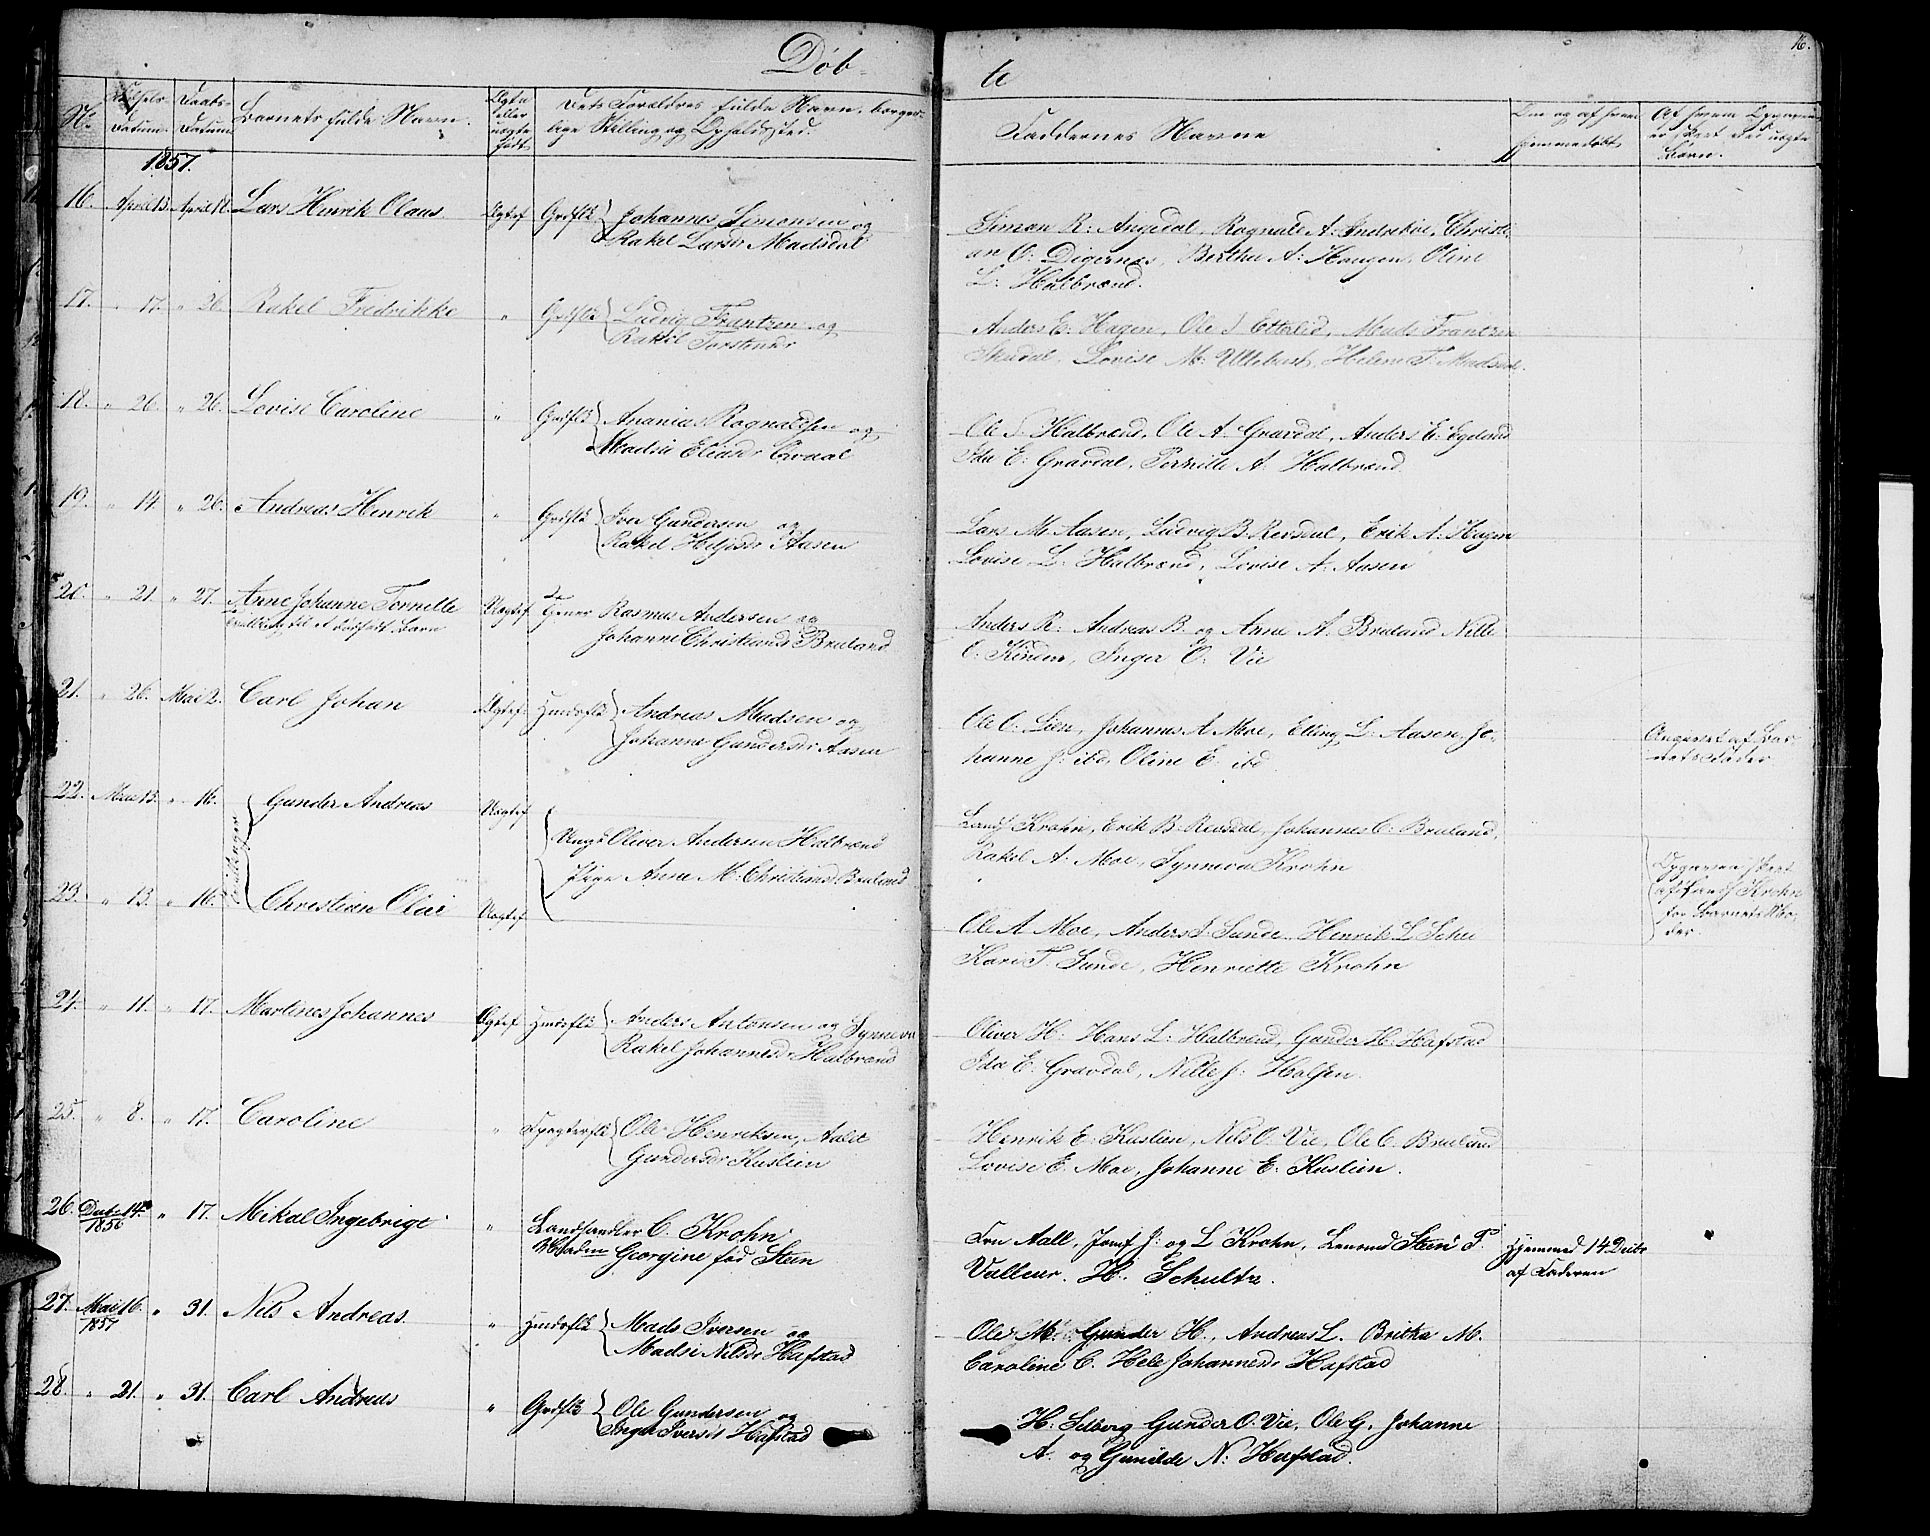 Døb-
te
16.
No
Fødsels-
Datum
Daabs-
Datum
Barnets fulde Navn.
Ægte
eller
uægte
født
Dets Forældres fulde Navn, borger-
lige Stilling og Opholdssted.
Faddernes Navne
Om og af hvem
hjemmedøbt
1857.
16. April 13. April 18. Lars Henrik Olaus Ægtef Grdflk Johannes Simonsen og
Rakel Larsdr Madsdal
Simon R: Angedal, Ragnald A: Indrebøe, Christi-
an O: Digernes, Berthe A: Haugen, Oline
L: Halbrend.
17. " 17. " 26. Rakel Fredrikke " Grdflk Ludvig Frantzen og
Rakel Torstensdr
Anders E: Hagen, Ole J Etterlid, Mads Frantzen
Skudal, Lovise M: Ullebust, Helene T. Madsdal.
18. " 26. " 26. Lovise Caroline " Grdflk Ananias Ragnaldsen og
Madsi Eliasdr
Ole J Halbrend, Ole A. Gravdal, Anders E: Egeland
Ida E: Gravdal, Pernille A. Halbrend.
19. " 14. " 26. Andreas Henrik " Grdflk Iver Gundersen og
Rakel Heljesdr Aasen
Lars M. Aasen, Ludvig B. Revsdal, Erik A: Hagen
Lovise L: Halbrend, Lovise A: Aasen
20. " 21. " 27. Anne Johanne Pernille Uægtef Rasmus Andersen og
Tvilling til et dødfødt Barn
Johanne Christiansdr Bruland
Anders R: Andreas B. og Anne A. Bruland Nille
O: Kinden, Inger O: Vie
21. " 26. Mai 2. Carl Johan Ægtef Huusflk Andreas Madsen og
Johanne Gundersdr Aasen
Ole O: Lien, Johannes A Moe, Elling L: Aasen, Jo-
hanne J: ibd, Oline E. ibd
Angivet af Bar-
nets Fader
22. Mai 13. " 16. Gunder Andreas Uægtef
Tvillinger
Ungk Oliver Andersen Halbrend
Pige Anne M: Christiansdr Bruland
Landh Krohn, Erik B. Revsdal, Johannes C: Bruland,
Rakel A. Moe, Synneva Krohn
Opgaven skeet
af Landh Krohn
for Barnets Mo-
der.
23. " 13. " 16. Christian Olai Uægtef
Ole A Moe, Anders J. Sunde, Henrik L Schei
Kari T. Sunde, Henriette Krohn
24. " 11. " 17. Martines Johannes Ægtef Huusflk Anders Antonsen og Synneva
Rakel Johannesdr Halbrend
Oliver H: Hans L: Halbrend, Gunder H: Hafstad
Ida E. Gravdal, Nille J: Halsen.
25. " 8. " 17. Caroline " Ole Henriksen, Aalet
Gundersdr Kuslien
Henrik E. Kuslien, Nils O. Vie, Ole C. Bruland
Lovise E. Moe, Johanne E. Kuslien.
26. Decbr 14de " 17. Mikal Ingebrigt " Landhandler C. Krohn
1856
Madm Georgine fød Stein
Fru Aall, Josef J: og L Krohn, Stein T.
H: Schultz.
Hjemmed 14 Decbr
af Faderen
27. Mai 16. " 31. Nils Andreas. " Huusflk Mads Iversen og
1857
Madsi Nilsdr Hafstad
Ole M. Gunder H., Andreas L. Britha M.
Caroline C. Hele Johannesdr Hafstad
28. " 21. " 31. Carl Andreas " Grdflk Ole Gundersen og
Inger Iversdr Hafstad
H: Selberg Gunder O. Vie, Ole G. Johanne
A. og Gunilde N: Hafstad.